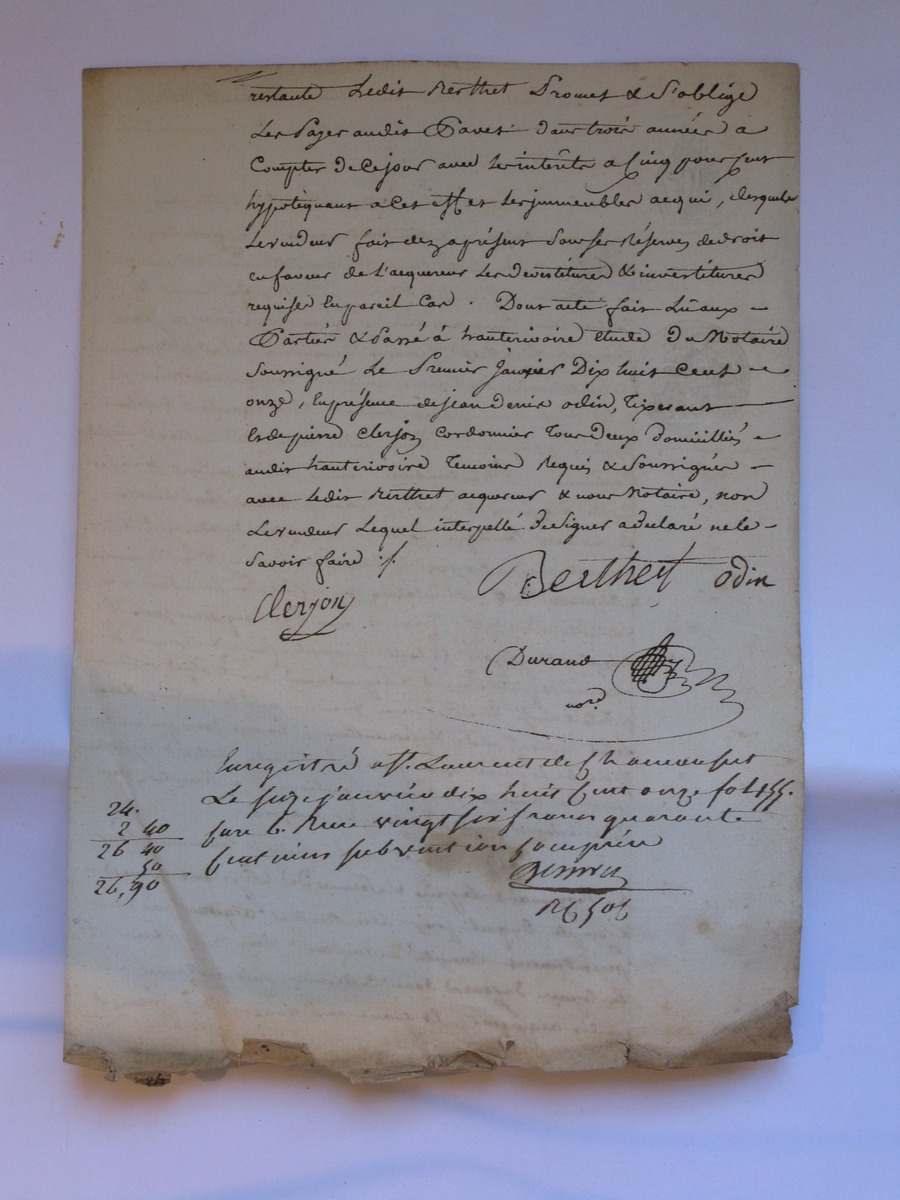 restante Ledit Berthet Promet & s'oblige
Les Payer audit Pavet dans trois années a
Compter de ce jour avec les intérêts a Cinq pour Cent
hypotéquant a Cet effet les immeubles acqui, desquels
Le vendeur fait dez aprésent sous ses Réserves de droit
en faveur de l'acquereur les devestitures & investitures
requises En pareil Cas. Dont acte fait Lû aux
Parties & Passé à hauterivoire etude du Notaire
Soussigné Le Premier Janvier Dix huit Cent
onze, En présence de jean Denis odin, tixerant
Et de pierre Clerjon Cordonnier Tous Deux domiciliés
audit hauterivoire Temoins Requis & Soussignés
avec Ledit Berthet acquereur & nous Notaire, non
Le vendeur Lequel interpellé de Signer a déclaré ne le
Savoir faire ./.
Berthet odin
Clerjon
Durand
nore
Enregistré a St. Laurent de Chamousset
Le janvier dix huit Cent onze fo
vingt six francs quarante
Centimes subvention Comprise
24.
2 40
26 40
50
26,90